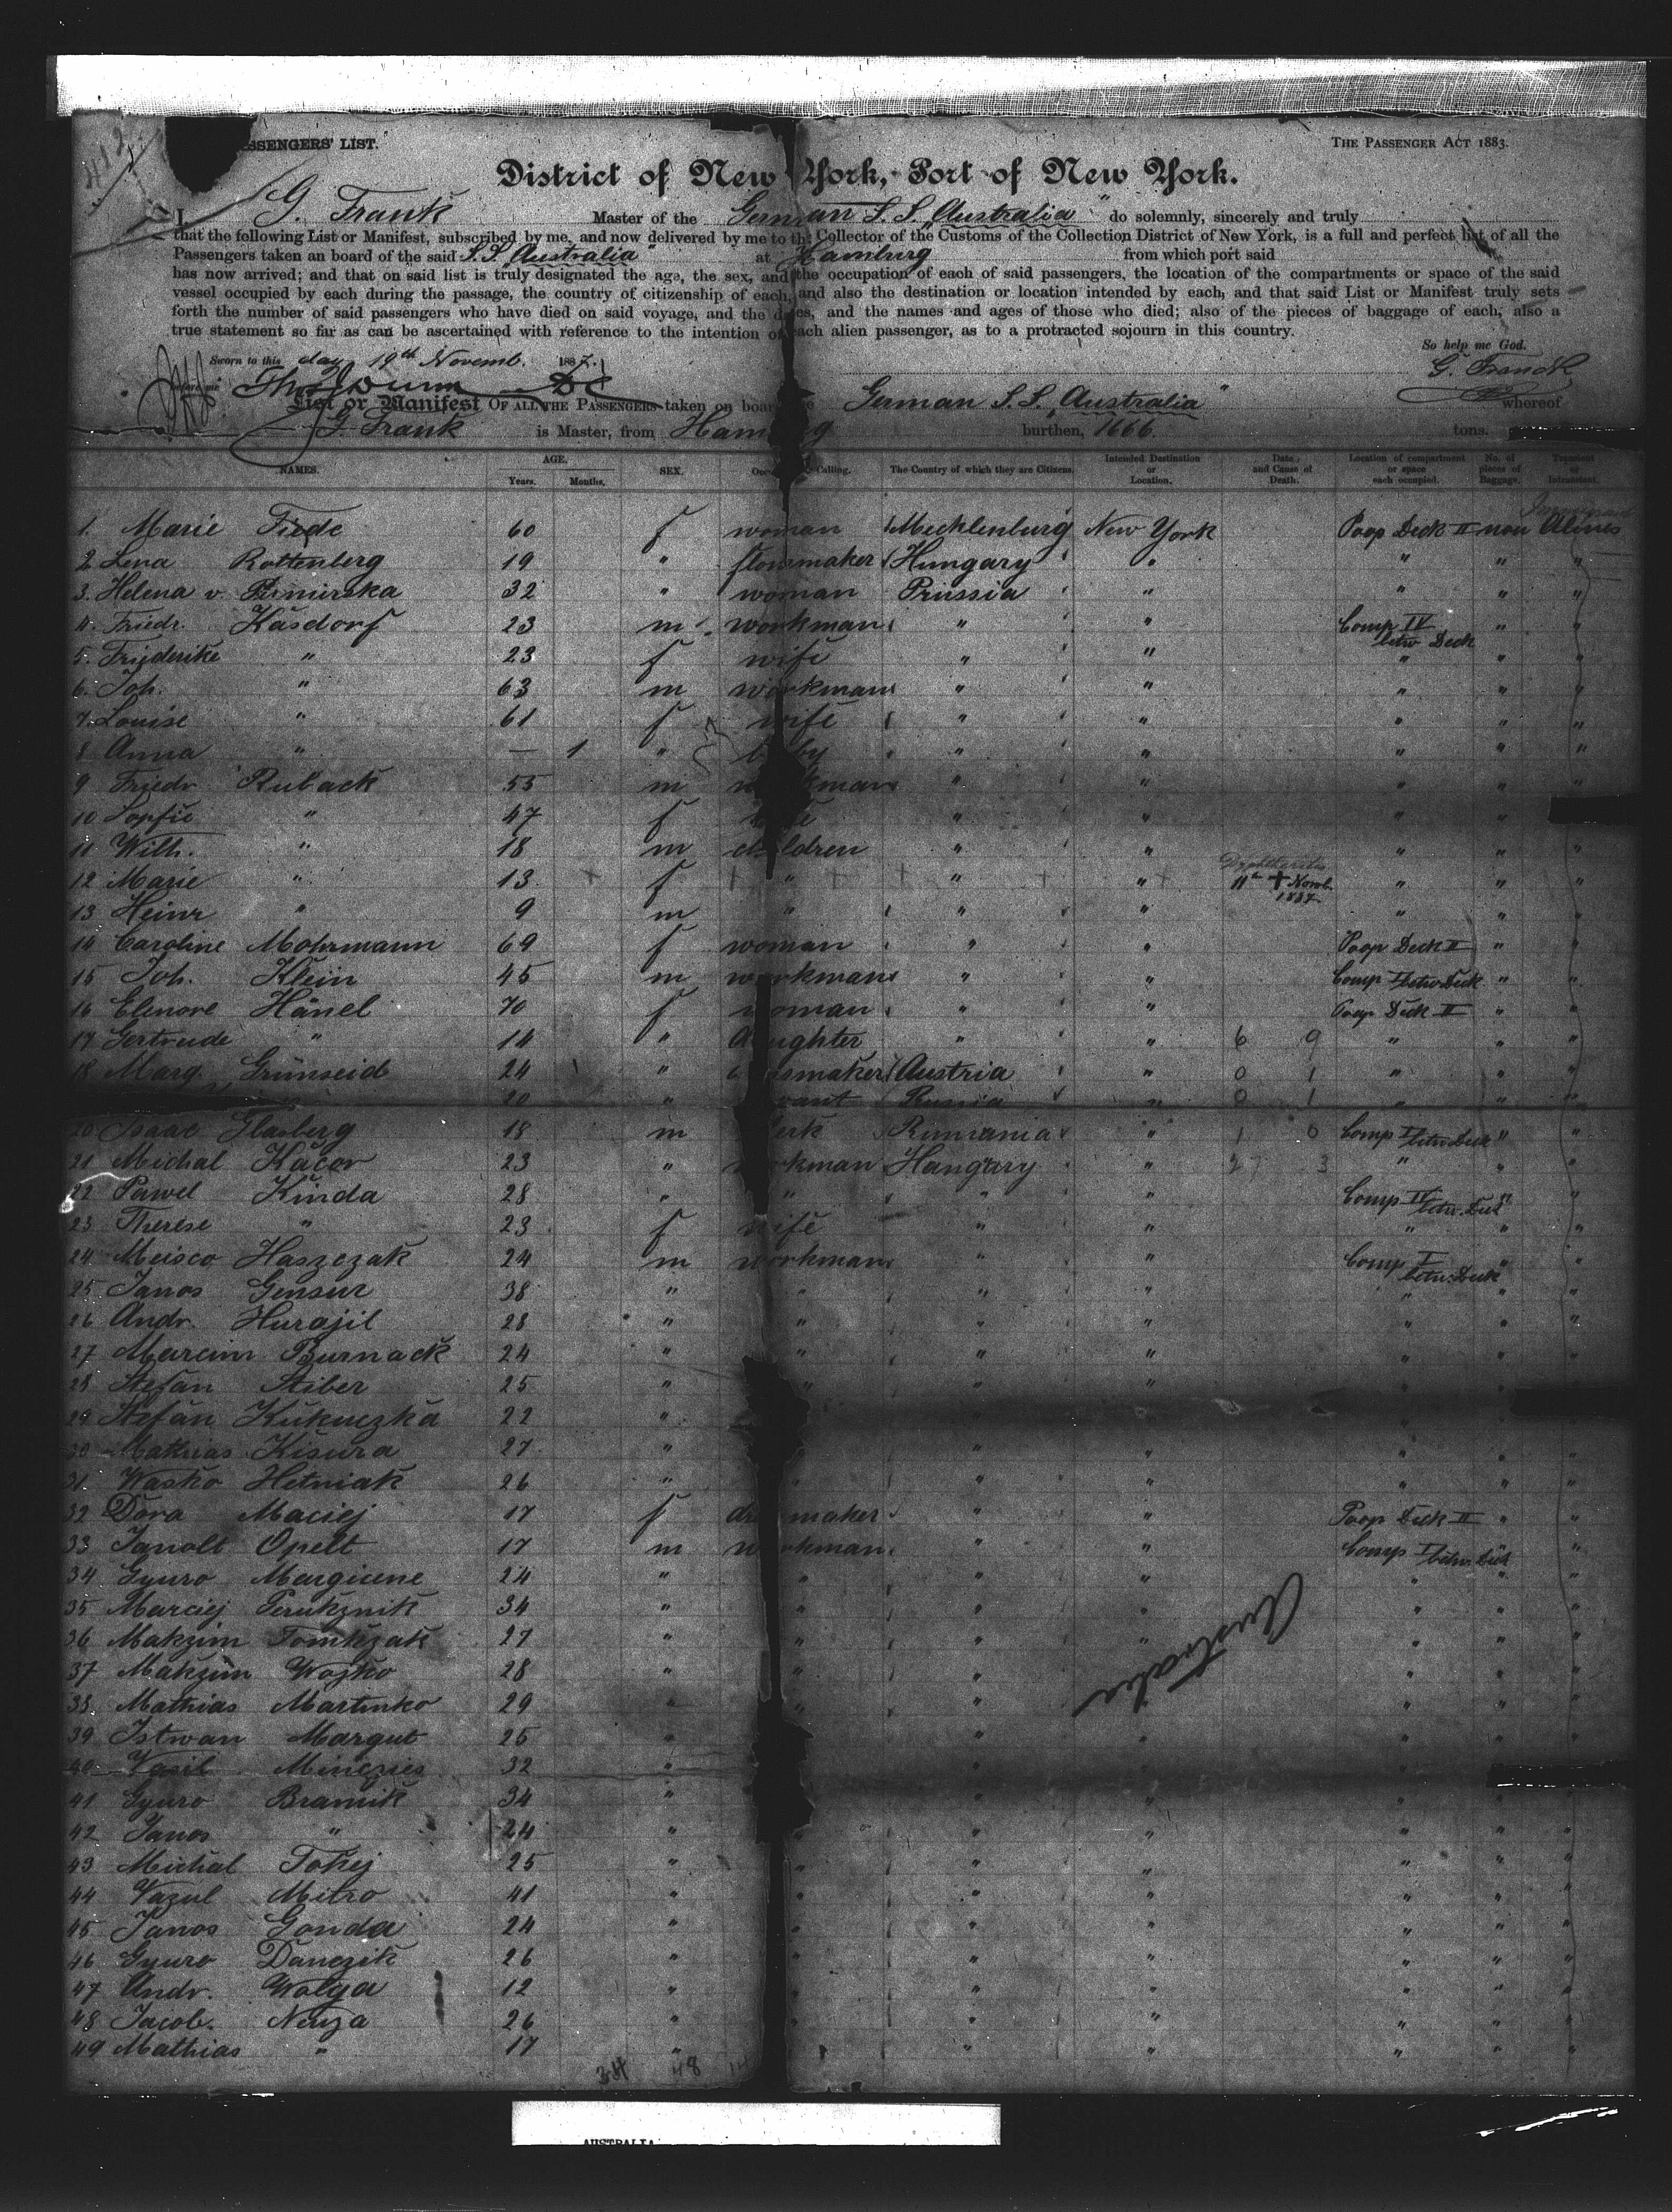 412
SSENGERS' LIST. THE PASSENGER ACT 1883.
District of New York, Port of New York.
I, G. Frank Master of the German S. S. "Australia" do solemnly, sincerely and truly
that the following List or Manifest, subscribed by me, and now delivered by me to the Collector of the Customs of the Collection District of New York, is a full and perfect list of all the
Passengers taken on board of the said S.S. "Australia" at Hamburg from which port said
has now arrived; and that on said list is truly designated the age, the sex, and the occupation of each of said passengers, the location of the compartments or space of the said
vessel occupied by each during the passage, the country of citizenship of each, and also the destination or location intended by each, and that said List or Manifest truly sets
forth the number of said passengers who have died on said voyage, and the dates, and the names and ages of those who died; also of the pieces of baggage of each, also a
true statement so far as can be ascertained with reference to the intention of each alien passenger, as to a protracted sojourn in this country.
So help me God.
Sworn to this day 19th Novemb. 1887. G. Franck
before me
List or Manifest OF ALL THE PASSENGERS taken on board the German S. S. "Australia" whereof
G. Frank is Master, from Hamburg burthen, 1666. tons.
NAMES. AGE. Years. Months. SEX. Calling. The Country of which they are Citizens. Intended Destination or Location. Date and Cause of Death. Location of compartment or space each occupied. No. of pieces of Baggage. Transient or Intransient.
1. Marie Tiede 60 f woman Mecklenburg New York Poop Deck II non Aliens
2. Lena Rottenberg 19 " Hungary " " " "
3. Helena v. 32 " woman Prussia " " " "
4. Friedr. Käsdorf 23 m workman " " Comp IV betw Deck " "
5. Friederike " 23 f wife " " " " "
6. Joh. " 63 m workman " " " " "
7. Louise " 61 f wife " " " " "
8 Anna " — 1 " baby " " " " "
9 Friedr Ruback 55 m workman " " " " "
10 Sopfie " 47 f wife " " " " "
11 Wilh. " 18 m children " " " " "
12 Marie " 13 f " " " Dyphtheritis 11th + Novb. 1887 " " "
13 Heinr " 9 m " " " " " "
14 Caroline Mohrmann 69 f woman " " Poop Deck II " "
15 Joh. Klein 45 m workman " " Comp I betw Deck " "
16 Elenore Hänel 70 f woman " " Poop Deck II " "
17 Gertrude " 14 " daughter " " 6 9 " " "
18 Marg. Grünseid 24 " smaker Austria " 0 1 " " "
20 " vant Russia " 0 1 " " "
20 Isaac Glasberg 18 m clerk Rumania " 1 0 Comp I betw Deck " "
21 Michal Kacov 23 " workman Hungary " 27 3 " " "
22 Pawel Kinda 28 " " " " Comp IV betw. Deck " "
23 Therese " 23 f wife " " " " "
24 Meisco Haszczak 24 m workman " " Comp I betw. Deck " "
25 Janos Gensur 38 " " " " " " "
26 Andr. Hurajil 28 " " " " " " "
27 Marcim Burnack 24 " " " " " " "
28 Stefan Stiber 25 " " " " " " "
29 Stefan Kukuczka 22 "
30 Mathias Kisura 27 " " " " " "
31 Wasko Hetniak 26 " " " " " " "
32 Dora Maciej 17 f dressmaker " " Poop Deck II " "
33 Janolt Opelt 17 m workman " " Comp I betw. Deck "
34 Gyuro Margicene 24 " " " " " " "
35 Marciej Perukznik 34 " " " " " " "
36 Makzim Tomkzak 27 " " " " " " "
37 Makzim Wojko 28 " " " " " " "
38 Mathias Martinko 29 " " " " " " "
39 Istwan Margut 25 " " " " " " "
40 Vasil 32 " " " " " "
41 Gyuro Bramik 34 " " " " "
42 Janos " 24 " " " " " " "
43 Michal Tokej 25 " " " " " " "
44 Vazul Mitro 41 " " " " " " "
45 Janos Gonda 24 " " " " " " "
46 Gyuro Danczik 26 " " " " " " "
47 Andr. Wolga 12 " " " " " " "
48 Jacob. Neuza 26 " " " " " " "
49 Mathias " 17 " " " " " "
Australia
34 48
AUSTRALIA